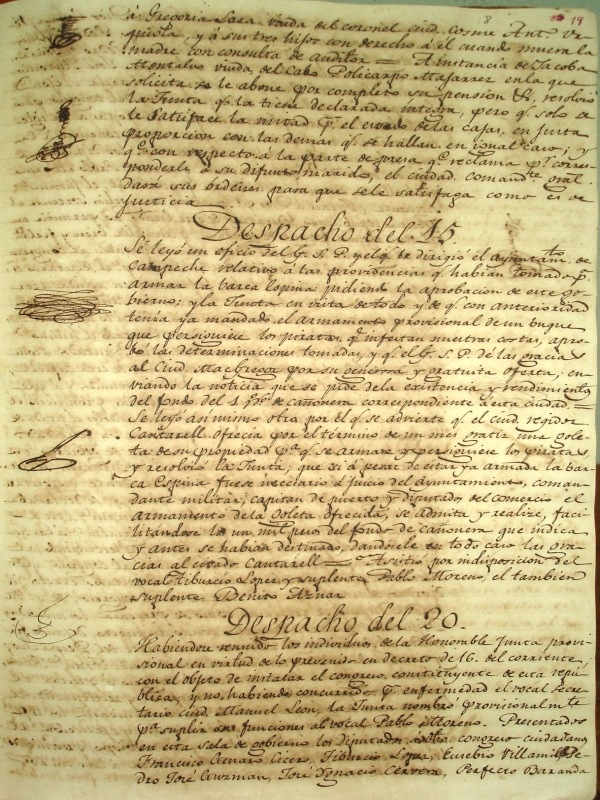 8 19
á Gregoria Lara viuda del coronel ciud. Cosme Ant.° Ur
quiola, y á sus tres hijos con derecho á el cuando muera la
madre con consulta de Auditor = A instancia de Jacoba
Montalvo viuda del Cabo Policarpo Majarrez en la que
solicita se le abone por completo su pension &, resolvió
la Junta q.e la tiene declarada integra, pero q.e solo se
le satisface la mitad p.r el estado de las cajas, en justa
proporcion con las demas q.e se hallan en igual caso; y
q.e con respecto á la parte de presa q.e reclama p.r corres
ponderle á su difunto marido, el ciudad. comand.te gral.
dará sus ordenes para que se le satisfaga como es de
justicia
Despacho del 15.
Se leyó un oficio del G. S. P. y el q.e le dirigió el ayuntam.to de
Campeche relativo á las providencias q.e habian tomado p.a
armar la barca Espina pidiendo la aprobacion de este go-
bierno; y la Junta en vista de todo y de q.e con anterioridad
tenia ya mandado el armamento provisional de un buque
que persiguiese los piratas q.e infestan nuestras costas, apro-
bó las determinaciones tomadas, y q.e el G. S. P. dé las gracias
al Ciud. MacGregor por su generosa y gratuita oferta, en-
viando la noticia que se pide de la existencia y rendimientos
del fondo del 1 p% de cañonera correspondiente á esta ciudad. =
Se leyó asi mismo otro por el q.e se advierte q.e el ciud. regidor
Cantarell ofrecia por el término de un mes gratis una gole
ta de su propiedad p.a q.e se armase y persiguiese los piratas
y resolvió la Junta, que si á pesar de estar ya armada la bar
ca Espina fuese necesario á juicio del Ayuntamiento, coman
dante militar, capitan de puerto y diputados del comercio el
armamento de la goleta ofrecida, se admita y realize, faci
litandose los un mil pesos del fondo de cañonera que indica
y antes se habian destinado, dandosele en todo caso las gra
cias al citado Cantarell = Asistió por indisposicion del
vocal Tiburcio Lopez y suplente Pablo Moreno, el tambien
suplente Benito Aznar
Despacho del 20.
Habiendose reunido los individuos de la Honorable Junta provi-
sional en virtud de lo prevenido en decreto de 16. del corriente,
con el objeto de instalar el congreso constituyente de esta repú
blica, y no habiendo concurrido p.r enfermedad el vocal secre
tario ciud. Manuel Leon, la Junta nombró provisionalm.te
p.a suplir sus funciones al vocal Pablo Moreno. Presentados
en esta Sala de gobierno los diputados congreso ciudadanos
Francisco Genaro Cicero, Tiburcio Lopez, Eusebio Villamil, Pe-
dro José Guzman, José Ignacio Cervera, Perfecto Baranda